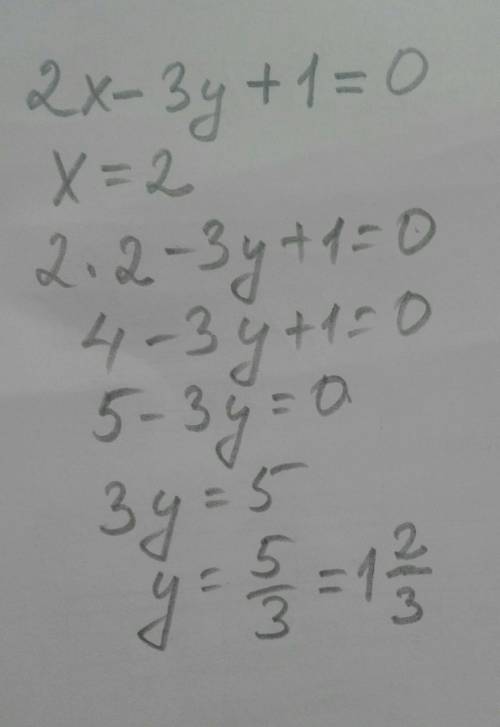 2x - 3y + 1 = 0
x = 2
2 · 2 - 3y + 1 = 0
4 - 3y + 1 = 0
5 - 3y = 0
3y = 5
y = 5/3 = 1 2/3